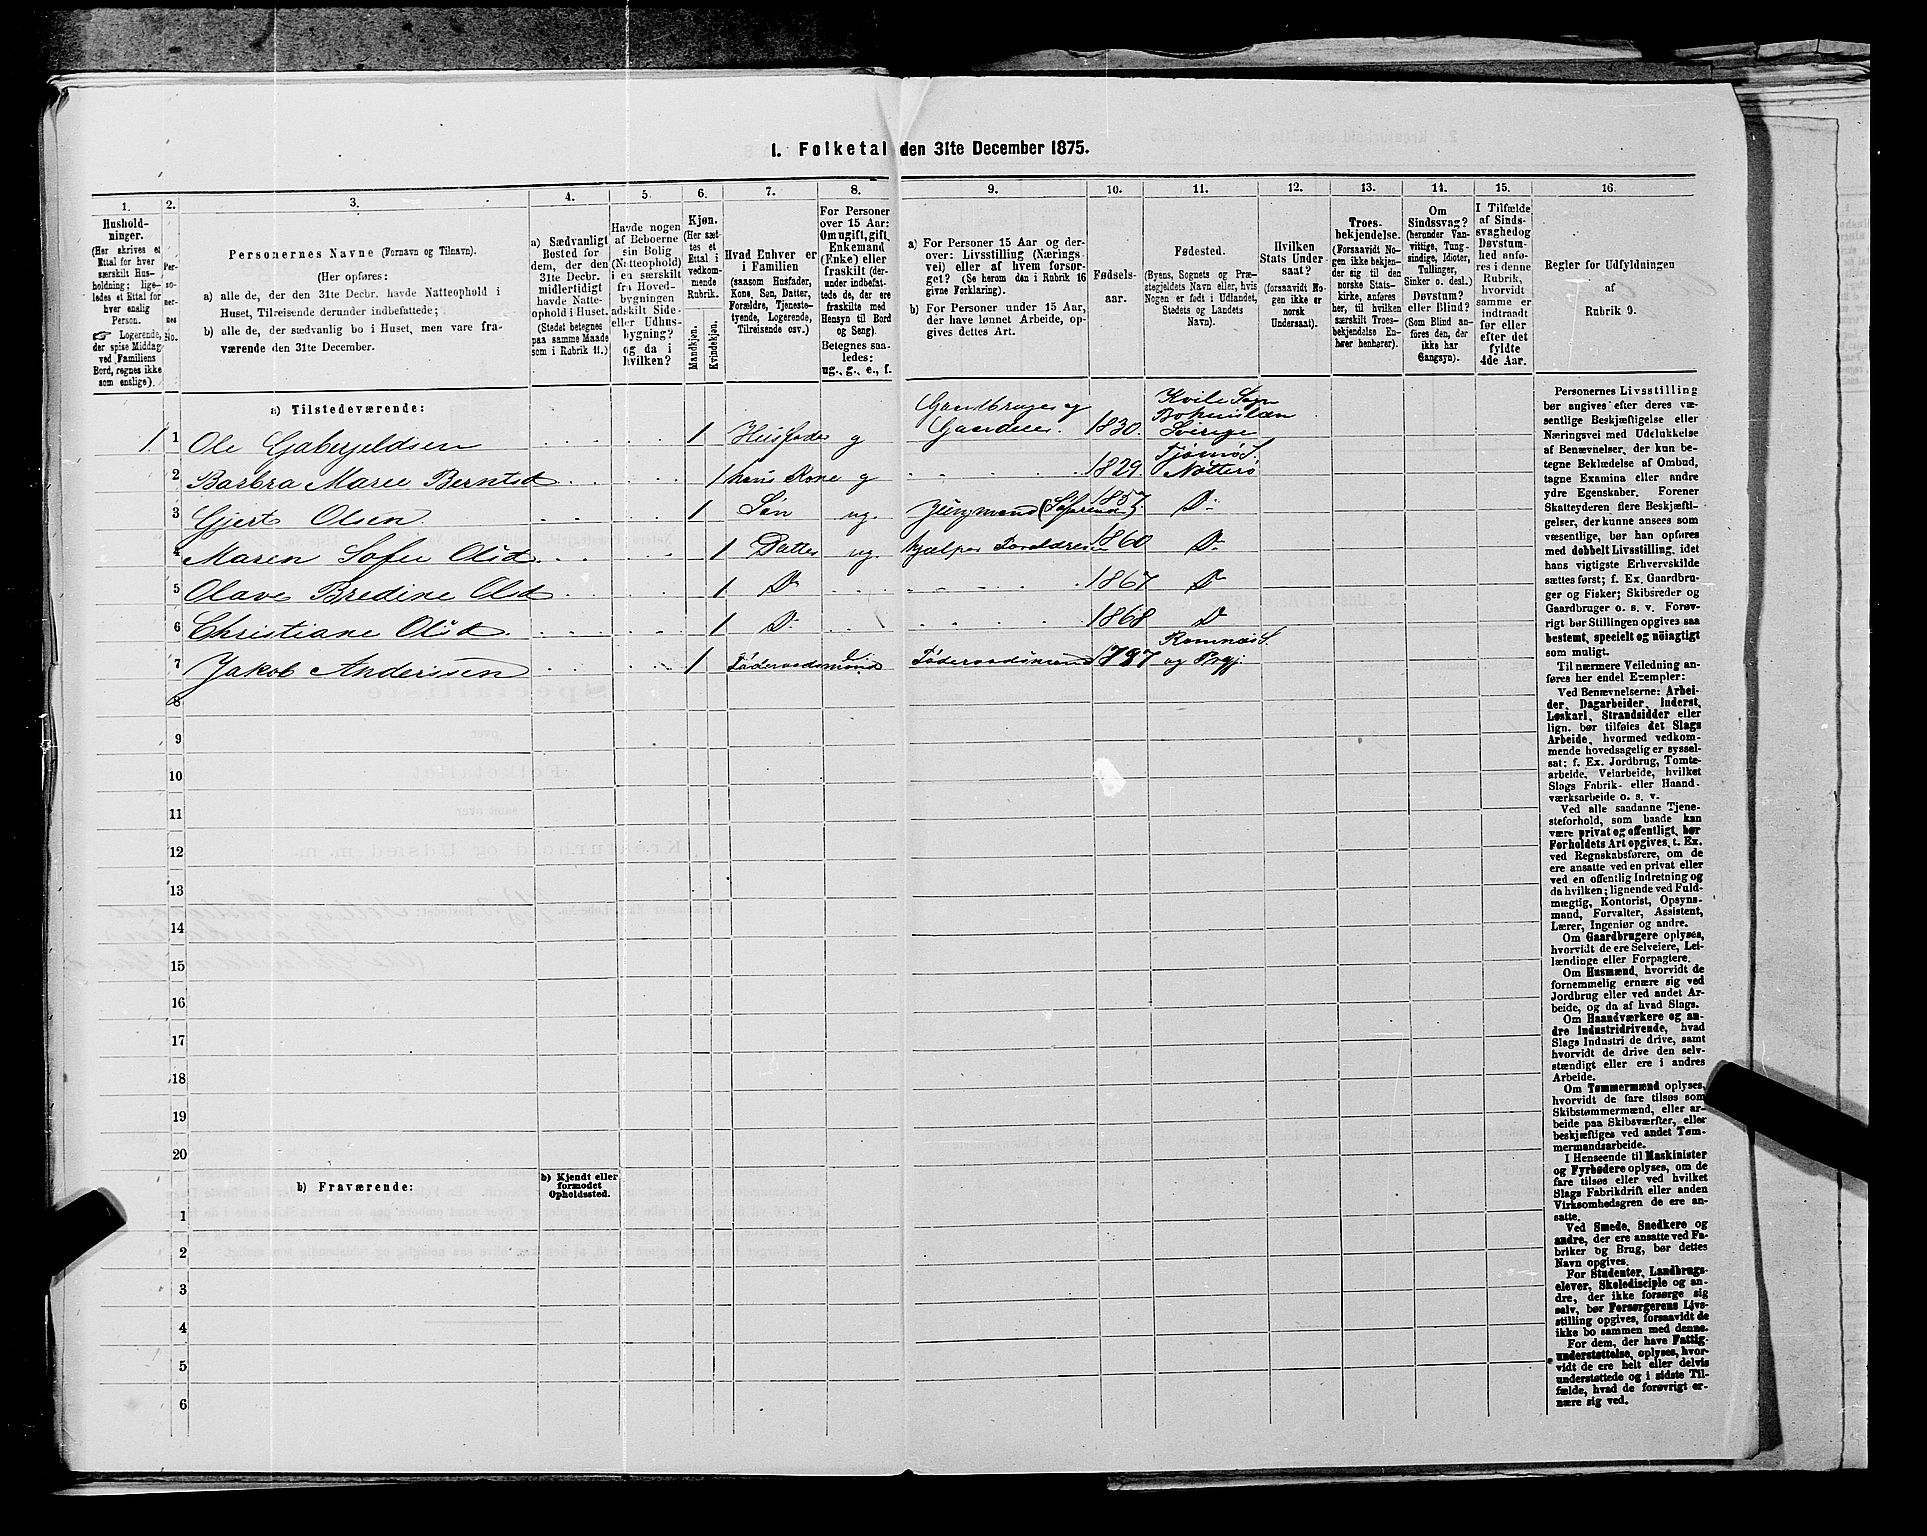 I. Folketal den 31te December 1875.
1.
Husholdninger.
(Her skrives et
Ettal for hver
særskilt Husholdning;
ligeledes et Ettal for
enslig
Person.
☞ Logerende,
der spise Middag
ved Familiens
Bord, regnes ikke
som enslige).
2.
Personernes
No.
3.
Personernes Navne (Fornavn og Tilnavn).
(Her opføres:
a) alle de, der den 31te Decbr. havde Natteophold i
Huset, Tilreisende derunder indbefattede;
b) alle de, der sædvanlig bo i Huset, men vare fraværende
den 31te December.
4.
a) Sædvanligt
Bosted for
dem, der den
31te Decbr.
midlertidigt
havde Natteophold
i Huset.
(Stedet betegnes
paa samme Maade
som i Rubrik 11.)
5.
Havde nogen
af Beboerne
sin Bolig
(Natteophold)
i en særskilt
fra Hovedbygningen
adskilt Side-
eller Udhusbygning?
og da i
hvilken?
6.
Kjøn.
(Her sættes
et
Ettal i
vedkommende
Rubrik.
Mandkjøn.
Kvindekjøn.
7.
Hvad Enhver er
i Familien
(saasom Husfader,
Kone, Søn, Datter,
Forældre, Tjenestetyende,
Logerende,
Tilreisende osv.)
8.
For Personer
over 15 Aar:
Om ugift, gift,
Enkemand
(Enke) eller
fraskilt (derindbefattede
de, der ere
fraskilte med
Hensyn til Bord
og Seng).
Betegnes saaledes:
ug., g., e., f.
9.
a) For Personer 15 Aar og derover:
Livsstilling (Næringsvei)
eller af hvem forsørget?
(Se herom den i Rubrik 16
givne Forklaring).
b) For Personer under 15 Aar,
der have lønnet Arbeide, opgives
dettes Art.
10.
Fødselsaar.
11.
Fødested.
(Byens, Sognets og Præstegjeldets
Navn eller, hvis
Nogen er født i Udlandet,
Stedets og Landets
Navn).
12.
Hvilken
Stats Undersaat?
(forsaavidt Nogen
ikke er
norsk
Undersaat).
13.
Troesbekjendelse.
(Forsaavidt Nogen
ikke bekjender
sig til den
norske Statskirke,
anføres
her, til hvilken
særskilt Troesbekjendelse
Enhver
henhører).
14.
Om
Sindssvag?
(herunder Vanvittige,
Tungsindige,
Idioter,
Tullinger,
Sinker o. desl.)
Døvstum?
eller Blind?
(Som Blind anføres
den, der
ikke har
Gangsyn).
15.
I Tilfælde
af Sindssvaghed
og
Døvstumhed
anføres
i denne
Rubrik,
hvorvidt
samme er
indtraadt
før eller
efter det
fyldte
4de Aar.
16.
Regler for Udfyldningen
af
Rubrik 9.
a) Tilstedeværende:
1 1 Ole Gabrjeldsen 1 Husfader g Gaardbruger og Gaardeier. 1830. Kvile Sogn Bohuslæn Sverige
2 Barbra Marie Berntsd 1 hans Kone g 1829. Tjømø S. Nøtterø
3 Gjert Olsen. 1 Søn ug. Jungmand 1857. Do
4 Maren Sofie Olsd. 1 Datter ug hjelper Forældrene 1860 Do
5 Olave Bredine Olsd 1 Do 1867 Do
6 Christiane Olsd. 1 Do 1868 Do
7 Jakob Anderssen 1 Føderaadsmand Føderaadsmand 1787 Ramnæs S. og Prgj.
8
9
10
11
12
13
14
15
16
17
18
19
20
b) Fraværende:
b) Kjendt eller
formodet
Opholdssted.
1
2
3
4
5
6
Personernes Livsstilling
bør angives efter deres væsentlige
Beskjæftigelse eller
Næringsvei med Udelukkelse
af Benævnelser, der kun betegne
Beklædelse af Ombud,
tagne Examina eller andre
ydre Egenskaber. Forener
Skatteyderen flere Beskjæftigelser,
der kunne ansees som
væsentlige, bør han opføres
med dobbelt Livsstilling, idet
hans vigtigste Erhvervskilde
sættes først; f. Ex. Gaardbruger
og Fisker; Skibsreder og
Gaardbruger o. s. v. Forøvrigt
bør Stillingen opgives saa
bestemt, specielt og nöiagtigt
som muligt.
Til nærmere Veiledning anføres
her endel Exempler:
Ved Benævnelserne: Arbeider,
Dagarbeider, Inderst,
Løskarl, Strandsidder eller
lign. bør tilføies det Slags
Arbeide, hvormed vedkommende
hovedsagelig er sysselsat;
f. Ex. Jordbrug, Tomtearbeide,
Veiarbeide, hvilket
Slags Fabrik- eller Haandværksarbeide
o. s. v.
Ved alle saadanne Tjenesteforhold,
som baade kan
være privat og offentligt, bør
Forholdets Art opgives, t. Ex.
ved Regnskabsførere, om de
ere ansatte ved en privat eller
ved en offentlig Indretning og
da hvilken; lignende ved Fuldmægtig,
Kontorist, Opsynsmand,
Forvalter, Assistent,
Lærer, Ingeniør og andre.
Om Gaardbrugere oplyses,
hvorvidt de ere Selveiere, Leilændinge
eller Forpagtere.
Om Husmænd, hvorvidt de
fornemmelig ernære sig ved
Jordbrug eller ved andet Arbeide,
og da af hvad Slags.
Om Haandværkere og andre
Industridrivende, hvad
Slags Industri de drive, samt
hvorvidt de drive den selvstændigt
eller ere i andres
Arbeide.
Om Tømmermænd oplyses,
hvorvidt de fare tilsøs som
Skibstømmermænd, eller arbeide
paa Skibsværfter, eller
beskjæftiges ved andet Tømmermandsarbeide.
I Henseende til Maskinister
og Fyrbødere oplyses, om de
fare tilsøs eller ved hvilket
Slags Fabrikdrift eller anden
Virksomhedsgren de ere ansatte.
Ved Smede, Snedkere og
andre, der ere ansatte ved Fabriker
og Brug, bør dettes
Navn opgives.
For Studenter, Landbrugselever,
Skoledisciple og andre,
der ikke forsørge sig
selv, bør Forsørgerens Livsstilling
opgives, forsaavidt de
ikke bo sammen med denne.
For dem, der have Fattigunderstøttelse,
oplyses, hvorvidt
de ere helt eller delvis
understøttede og i sidste Tilfælde,
hvad de forøvrigt ernære
sig ved.